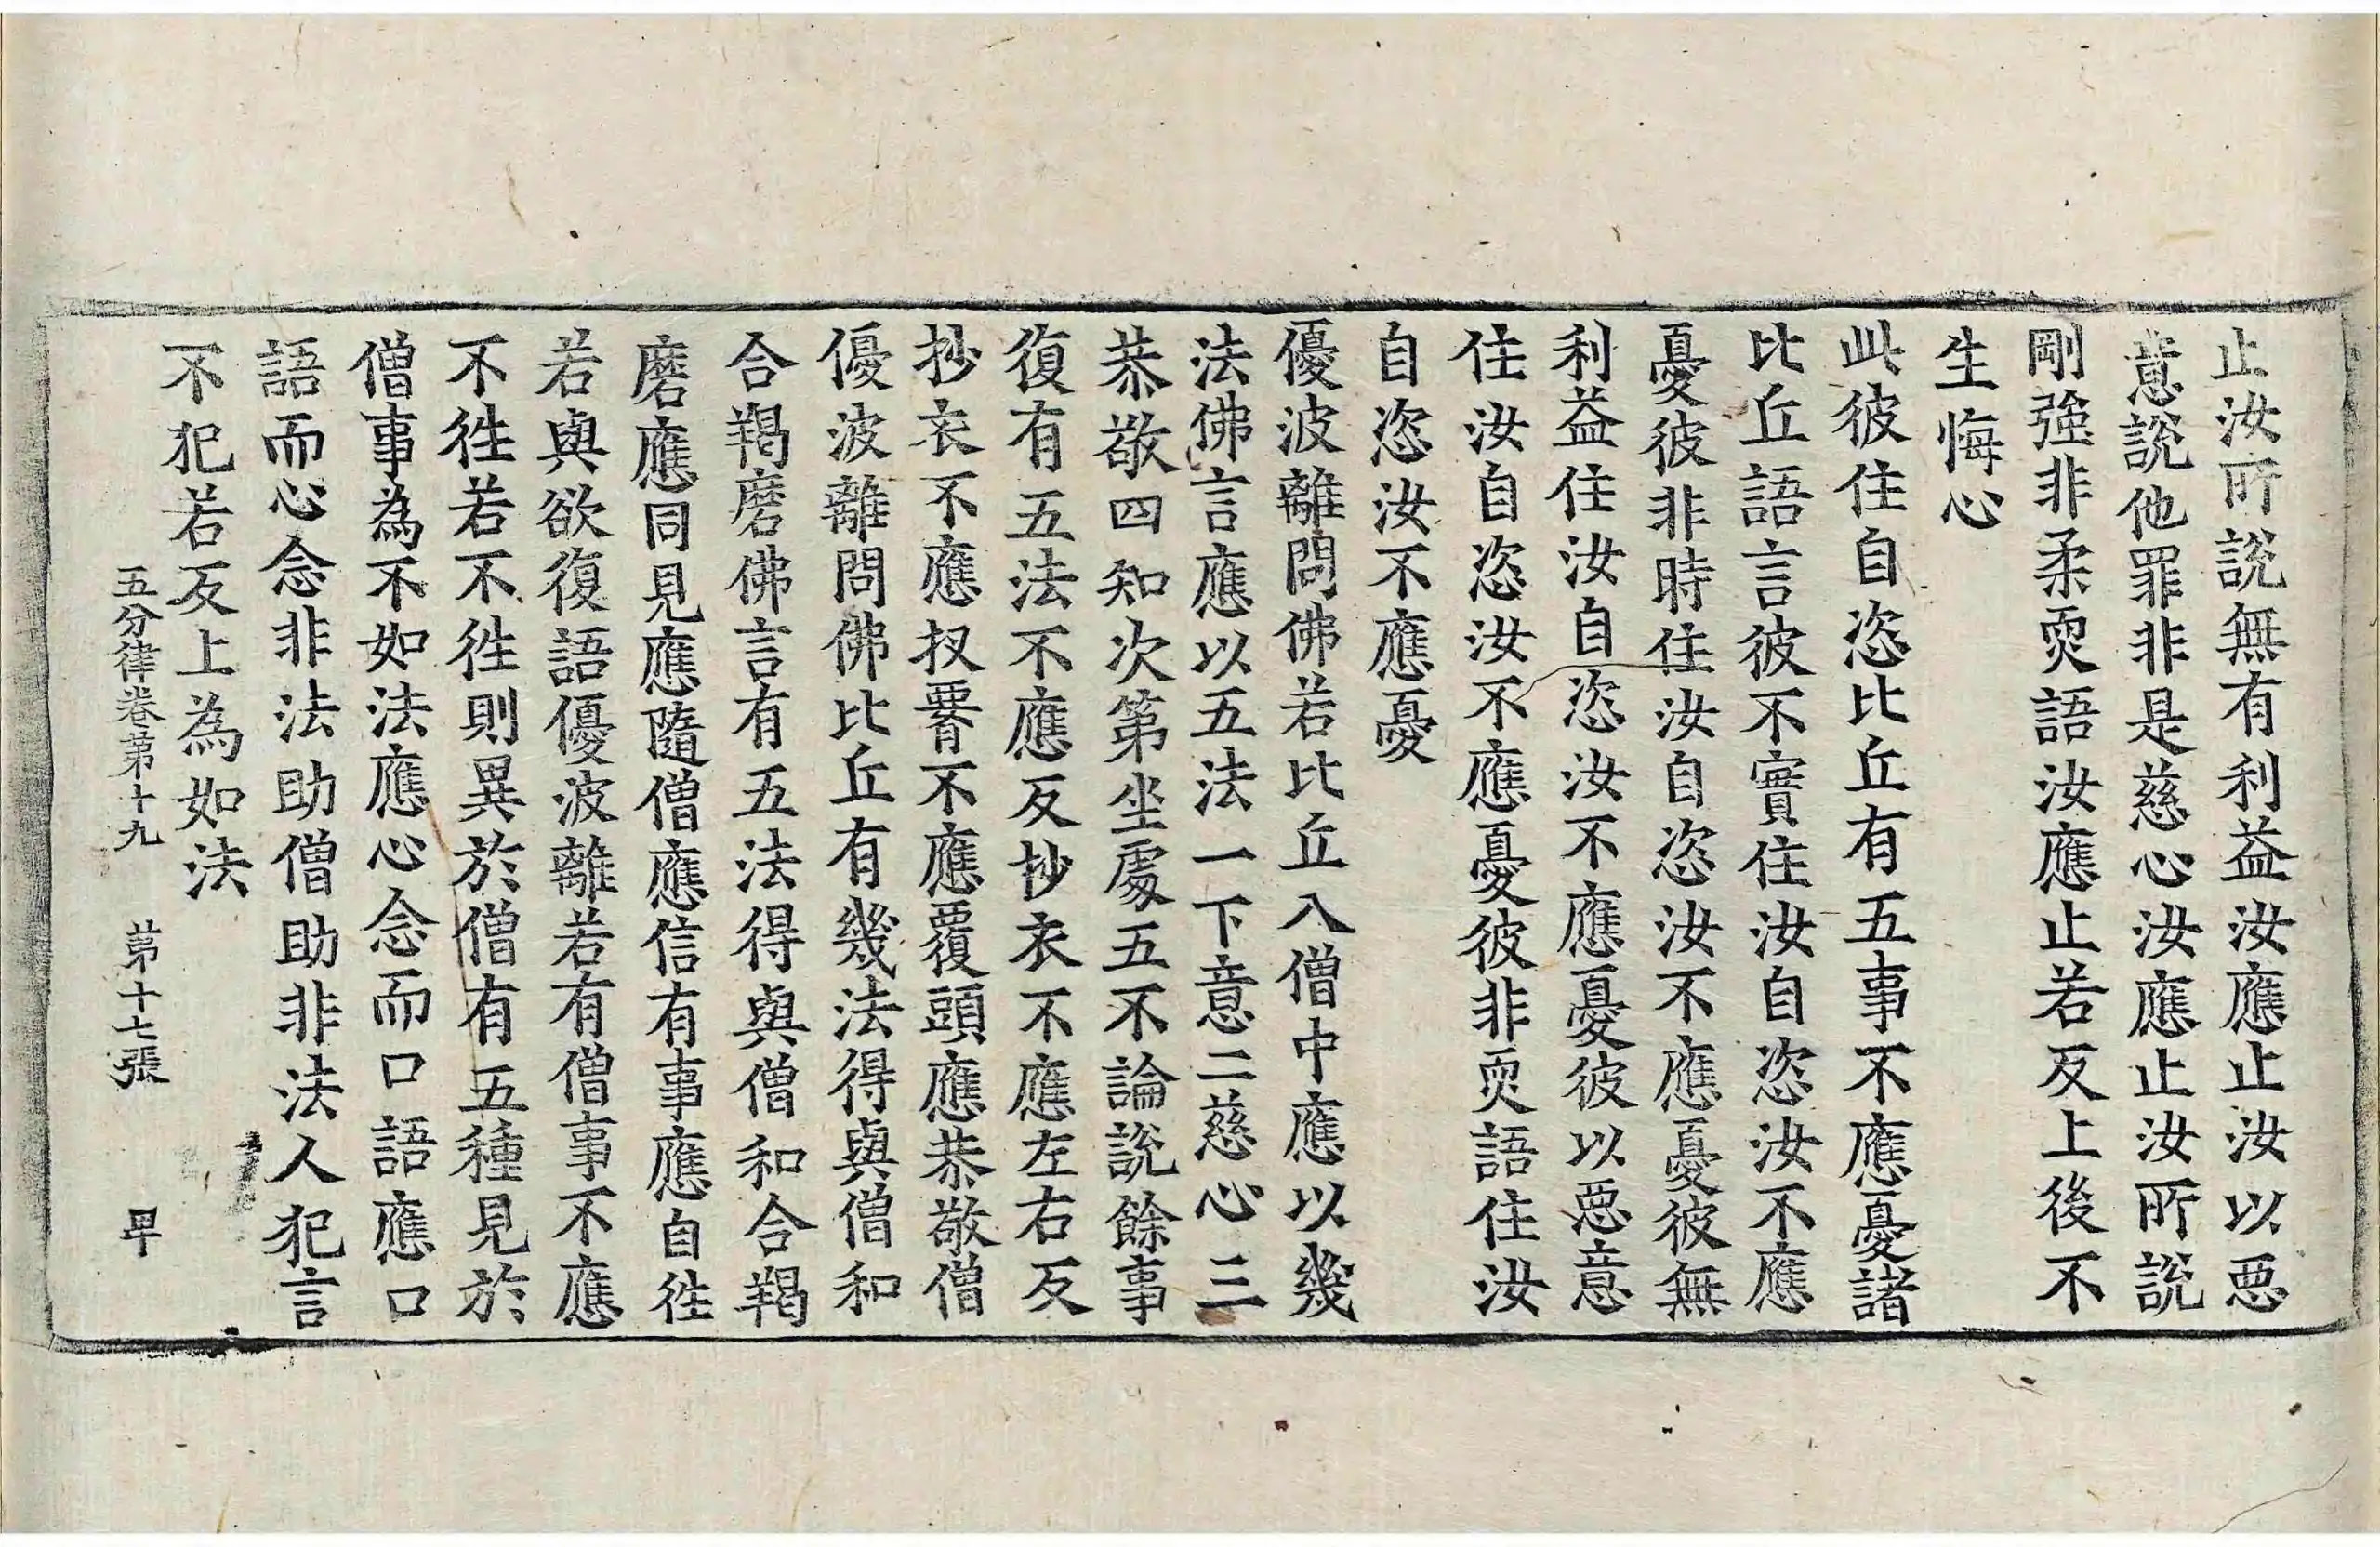 止汝所說無有利益汝應止汝以惡
意說他罪非是慈心汝應止汝所說
剛強非柔耎語汝應止若反上後不
生悔心
此彼住自恣比丘有五事不應憂諸
比丘語言彼不實住汝自恣汝不應
憂彼非時住汝自恣汝不應憂彼無
利益住汝自恣汝不應憂彼以惡意
住汝自恣汝不應憂彼非耎語住汝
自恣汝不應憂
優波離問佛若比丘入僧中應以幾
法佛言應以五法一下意二慈心三
恭敬四知次第坐處五不論說餘事
復有五法不應反抄衣不應左右反
抄衣不應扠䙅不應覆頭應恭敬僧
優波離問佛比丘有幾法得與僧和
合羯磨佛言有五法得與僧和合羯
磨應同見應隨僧應信有事應自徃
若與欲復語優波離若有僧事不應
不徃若不徃則異於僧有五種見於
僧事為不如法應心念而口語應口
語而心念非法助僧助非法人犯言
不犯若反上為如法
五分律卷第十九 第十七張 㫔